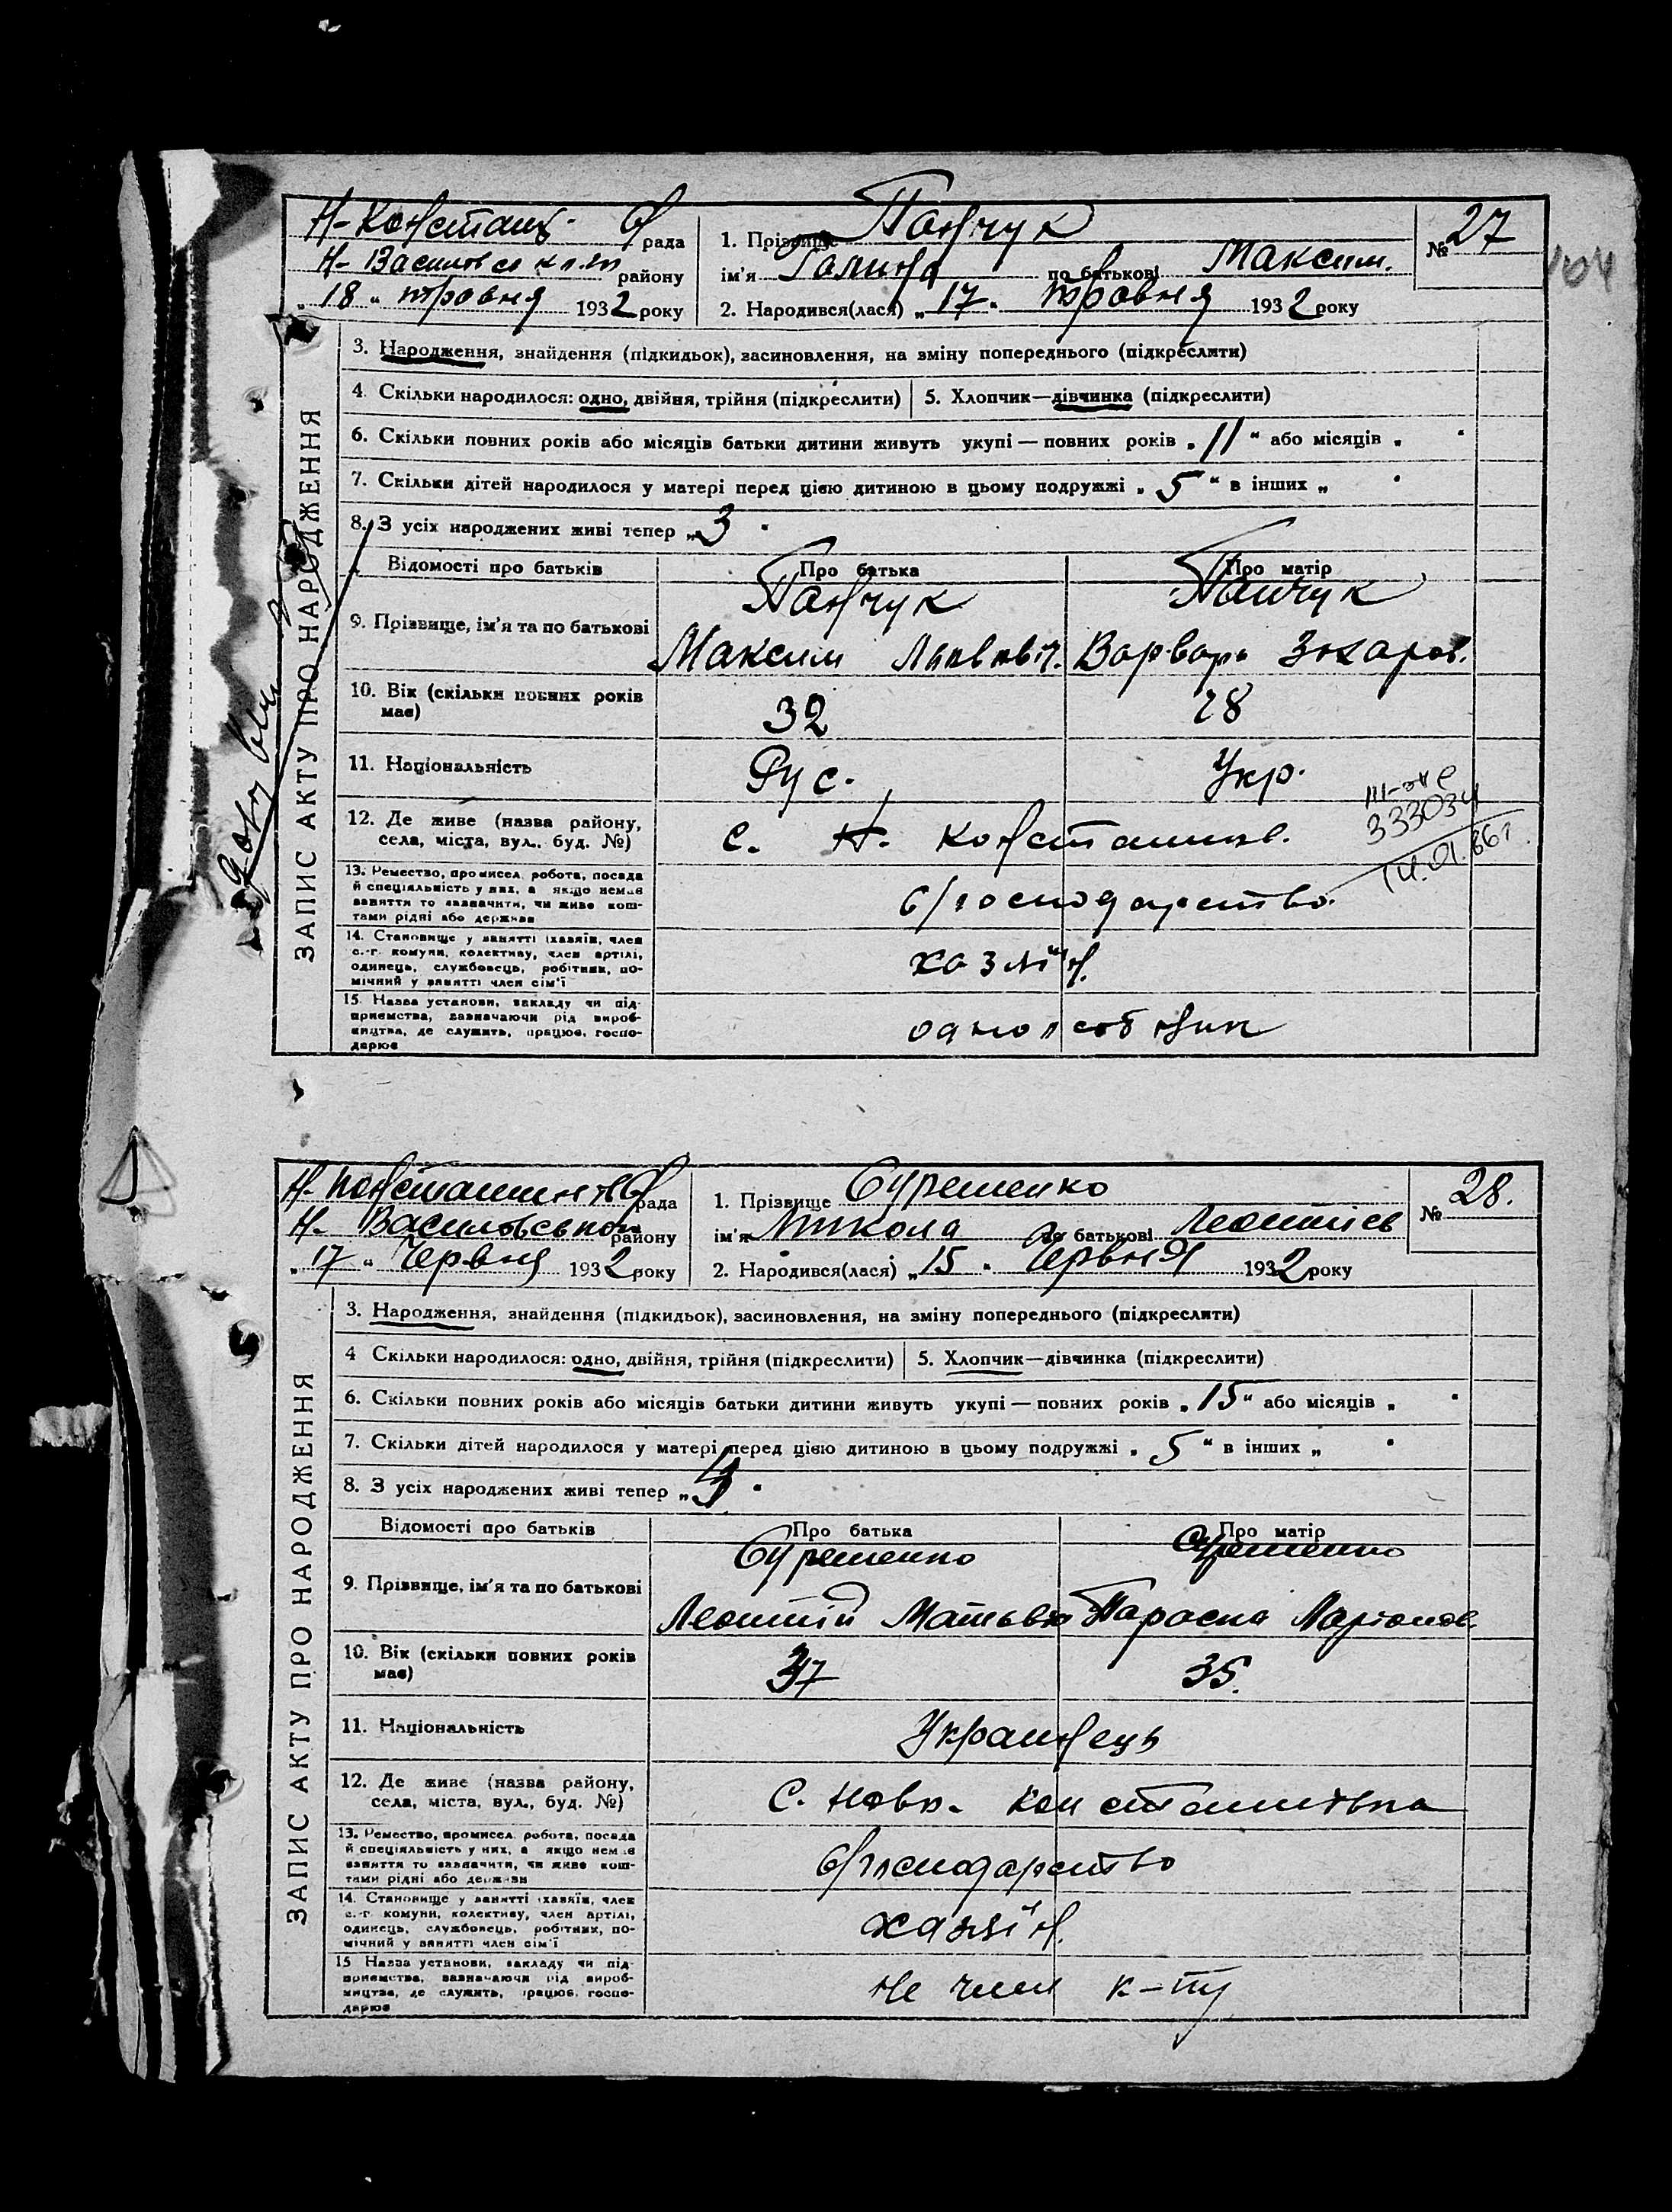 Н-Констант. С/рада
Н- Васил района
"18" травня 1932 року
1. Прізвище Панчук
ім'я Галина по батькові Максим.
2. Народився(лася) "17" травня 1932 року
№ 27
104
ЗАПИС АКТУ ПРО НАРОДЖЕННЯ
3. Народження, знайдення (підкидьок), засиновлення, на зміну попереднього (підкреслити)
4. Скільки народилося: одно, двійня, трійня (підкреслити) 5. Хлопчик—дівчинка (підкреслити)
6. Скільки повних років або місяців батьки дитини живуть укупі — повних років „11" або місяців „ "
7. Скільки дітей народилося у матері перед цією дитиною в цьому подружжі „5" в інших „ "
8. З усіх народжених живі тепер „3"
Відомості про батьків Про батька Про матір
9. Прізвище, ім'я та по батькові
Панчук Панчук
Максим Варвара Захаров.
10. Вік (скільки повних років має) 32 28
11. Національність Рус. Укр.
12. Де живе (назва району, села, міста, вул., буд. №) с. Н. Константинов.
III-
333034
14.01.66г.
13. Ремество, промисел, робота, посада
й спеціяльність у них, а якщо немає
заняття то зазначити, чи живе кош-
тами рідні або держави
с/господарство.
14. Становище у занятті (хазяїн, член
с.-г. комуни, колективу, член артілі,
одинець, службовець, робітник, по-
мічний у занятті член сім'ї
хазяїн.
15. Назва установи, закладу чи під-
приємства, зазначаючи рід вироб-
ництва, де служить, працює, госпо-
дарює
одноособник
Н. Константинів С/рада
Н- Василовського району
"17" Червня 1932 року
1. Прізвище Суременко
ім'я Микола по батькові Леонтієв
2. Народився(лася) "15" Червня 1932 року
№ 28.
ЗАПИС АКТУ ПРО НАРОДЖЕННЯ
3. Народження, знайдення (підкидьок), засиновлення, на зміну попереднього (підкреслити)
4 Скільки народилося: одно, двійня, трійня (підкреслити) 5. Хлопчик—дівчинка (підкреслити)
6. Скільки повних років або місяців батьки дитини живуть укупі — повних років „15" або місяців „ "
7. Скільки дітей народилося у матері перед цією дитиною в цьому подружжі „5" в інших „ "
8. З усіх народжених живі тепер „ "
Відомості про батьків Про батька Про матір
9. Прізвище, ім'я та по батькові
Суременко Суременко
Леонтій Матьвів Параска Ларіонов
10. Вік (скільки повних років має) 37 35.
11. Національність Українець
12. Де живе (назва району, села, міста, вул., буд. №) С. Ново. Константинівка
13. Ремество, промисел, робота, посада
й спеціяльність у них, а якщо немає
заняття то зазначити, чи живе кош-
тами рідні або держави
с/господарство
14. Становище у занятті (хазяїн, член
с.-г. комуни, колективу, член артілі,
одинець, службовець, робітник, по-
мічний у занятті член сім'ї
хазяїн.
15 Назва установи, закладу чи під-
приємства, зазначаючи рід вироб-
ництва, де служить, працює, госпо-
дарює
не член к-ту